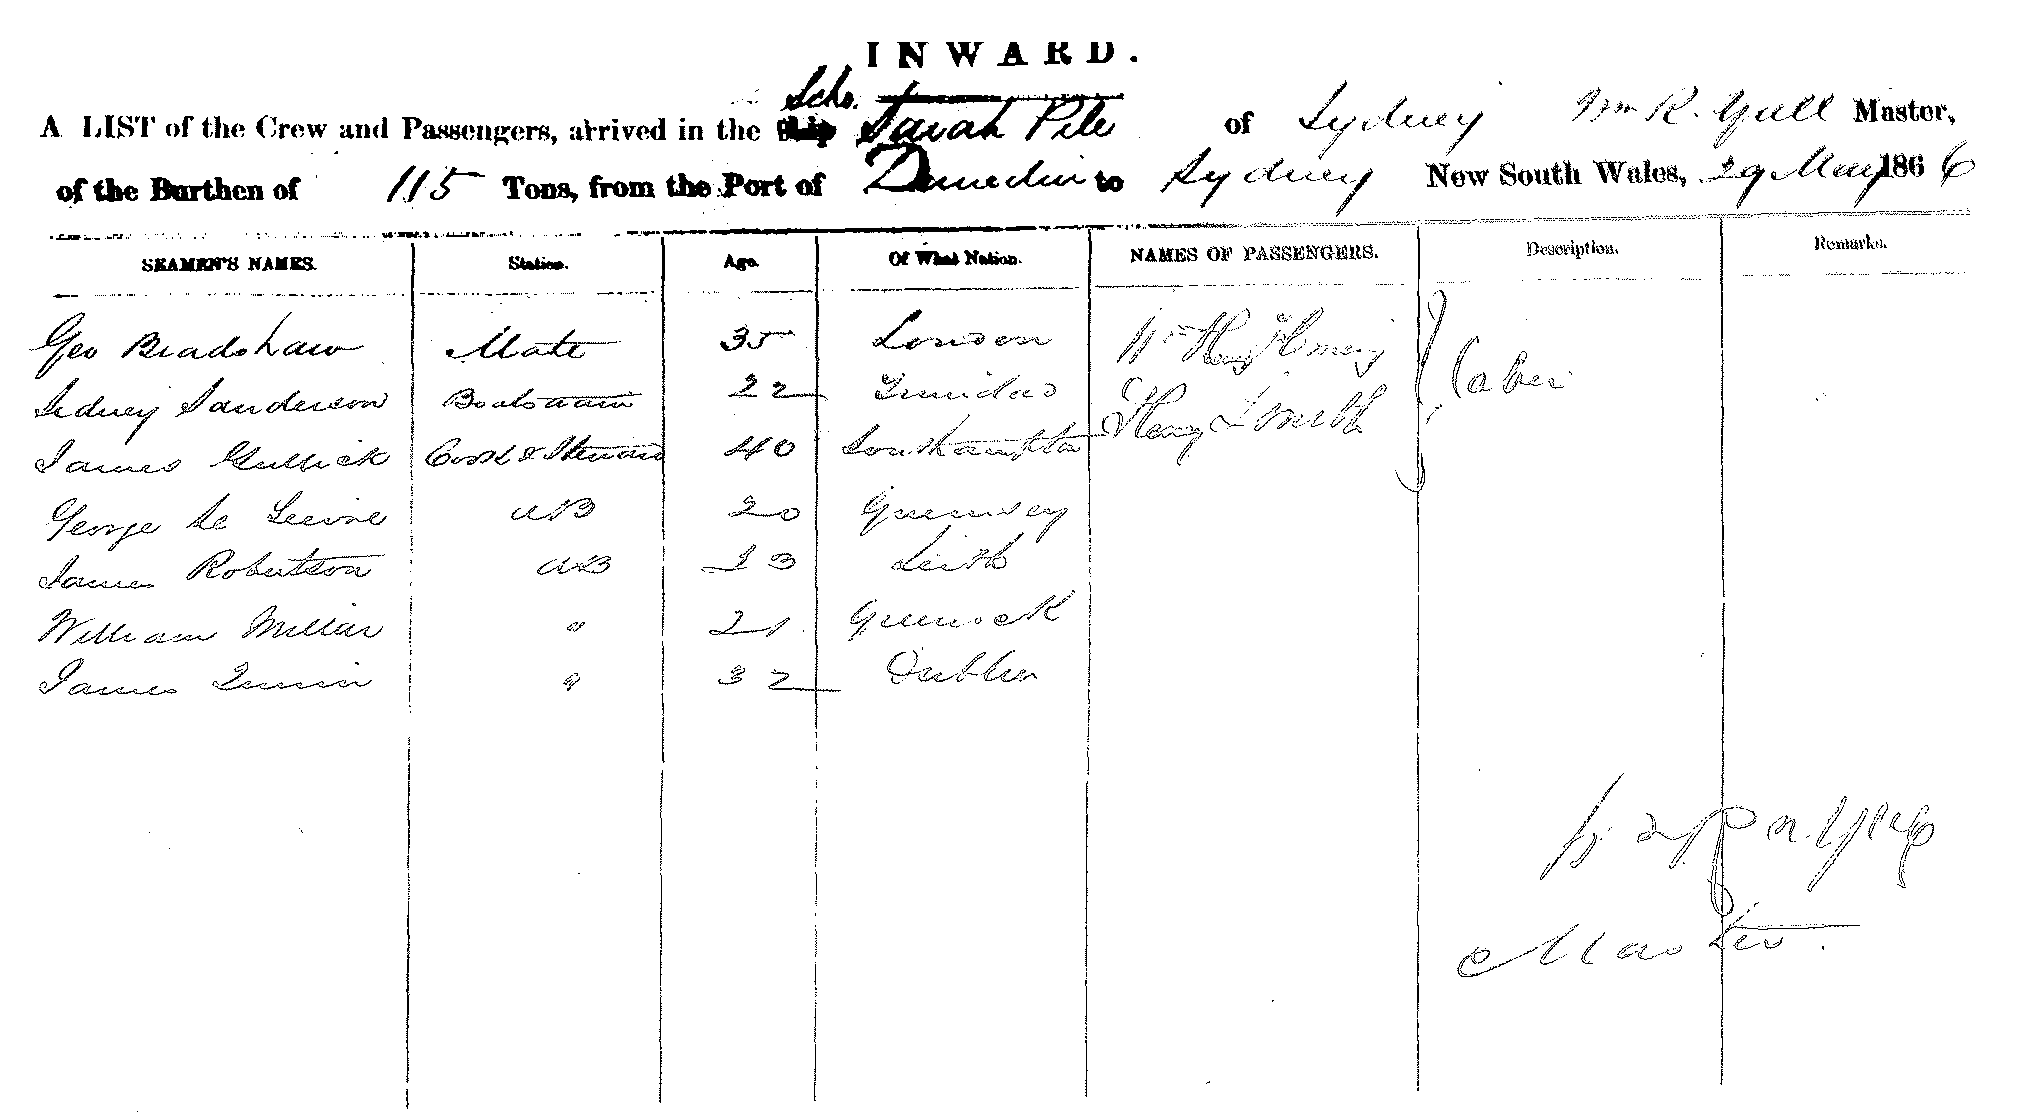 INWARD.
A LIST of the Crew and Passengers, arrived in the Ship Scho. Sarah Pile of Sydney Wm R. Yull Master,
of the Burthen of 115 Tons, from the Port of Dunedin to Sydney New South Wales, 29 May 1866
SEAMEN'S NAMES. Station. Age. Of What Nation. NAMES OF PASSENGERS. Description. Remarks.
Geo Bradshaw Mate 35 London Wm Henry
Sidney Sanderson Boatswain 22 Trinidad Henry Smith Cabin
James Gullick Cook & Steward 40 Southampton
George Le Leivre AB 20 Guernsey
James Robertson AB 23 Leith
William Millar " 21 Greenock
James Quinn " 32 Dublin
Master.